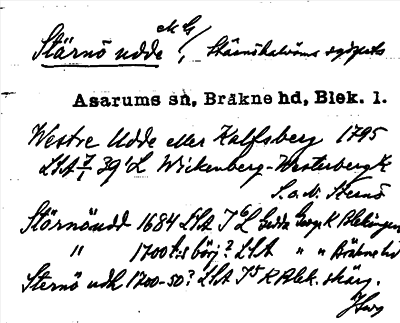 Stärnö udde MG / Stärnöhalvöns sydspets
Asarums sn, Bräkne hd, Blek. l.
Westre Udde eller Kalfsberg 1795
LSA 7/7 39:1 Wickenberg-Westerberg K
S. o. N. Sternö
Stärnöudd 1684 LSA I 6 K Blekingen
" 1700-t:s börj? LSA " " Bräkne hd
Sternö udh 1700-50? LSA I 5 K Blek. skärg.